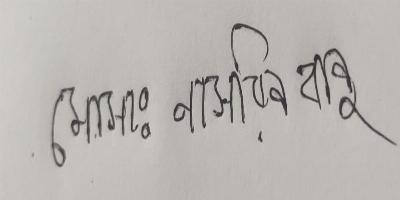 মোসাঃ নাসরিন বানু